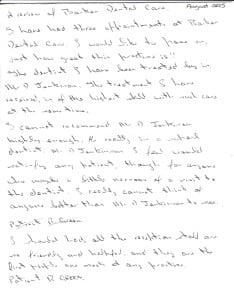 August 2025
A review of Barker Dental Care
I have had three appointments at Barker
Dental Care. I would like to pass on,
just how great this practice is"
The dentist I have been treated by is
Mr D Jenkinson. The treatment I have
received, is of the highest skill with real care
at the same time.
I cannot recommend Mr D Jenkinson
highly enough. He really is a
dentist. Mr D Jenkinson I feel would
any patient, though for anyone
who maybe a little nervous of a visit to
the dentist. I really cannot think of
anyone better than Mr D Jenkinson to see.
Patient R. Green
I should add, all the reception staff are
so friendly and helpful, and they are the
first people one meets at any practice.
Patient R. Green